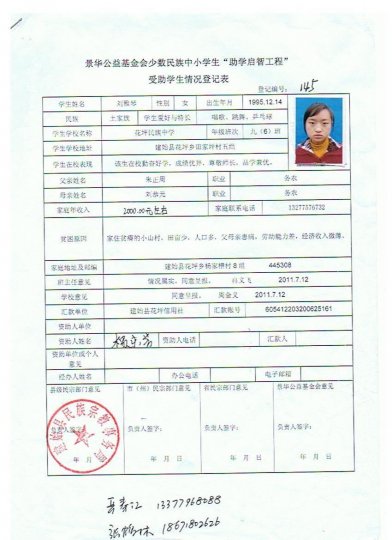 景华公益基金会少数民族中小学生“助学启智工程”
受助学生情况登记表
登记编号： 145
学生姓名 刘雅琴 性别 女 出生年月 1995.12.14
民族 土家族 学生爱好与特长 唱歌、跳舞、乒乓球
学生学校名称 花坪民族中学 年级班次 九（6）班
学生学校地址 建始县花坪乡田家坪村五组
学生在校表现 该生在校勤奋好学，成绩优异，尊敬师长，品学兼优。
父亲姓名 朱正周 职业 务农
母亲姓名 职业 务农
家庭年收入 2000.00元左右 家庭联系电话 13277576732
贫困原因 家住贫瘠的小山村，田亩少，人口多，父母亲患病，劳动能力差，经济收入微薄。
家庭地址及邮编 建始县花坪乡杨家槽村8组 445308
班主任意见 情况属实，同意呈报。 向文飞 2011.7.12
学校意见 同意呈报。 周金义 2011.7.12
汇款单位 建始县花坪信用社 汇款账号 605412203200625161
资助人单位
资助人姓名 资助人电话 汇款人
资助单位或个人意见
经办人姓名 办公电话 电子邮箱
县级民宗部门意见 市（州）民宗部门意见 省民宗部门意见 景华公益基金会意见
建始县民族宗教事务局
负责人签字： 负责人签字： 负责人签字： 负责人签字：
年 月 年 月 日 年 月 日 年 月 日
13377968088
张鹤林 18671802626